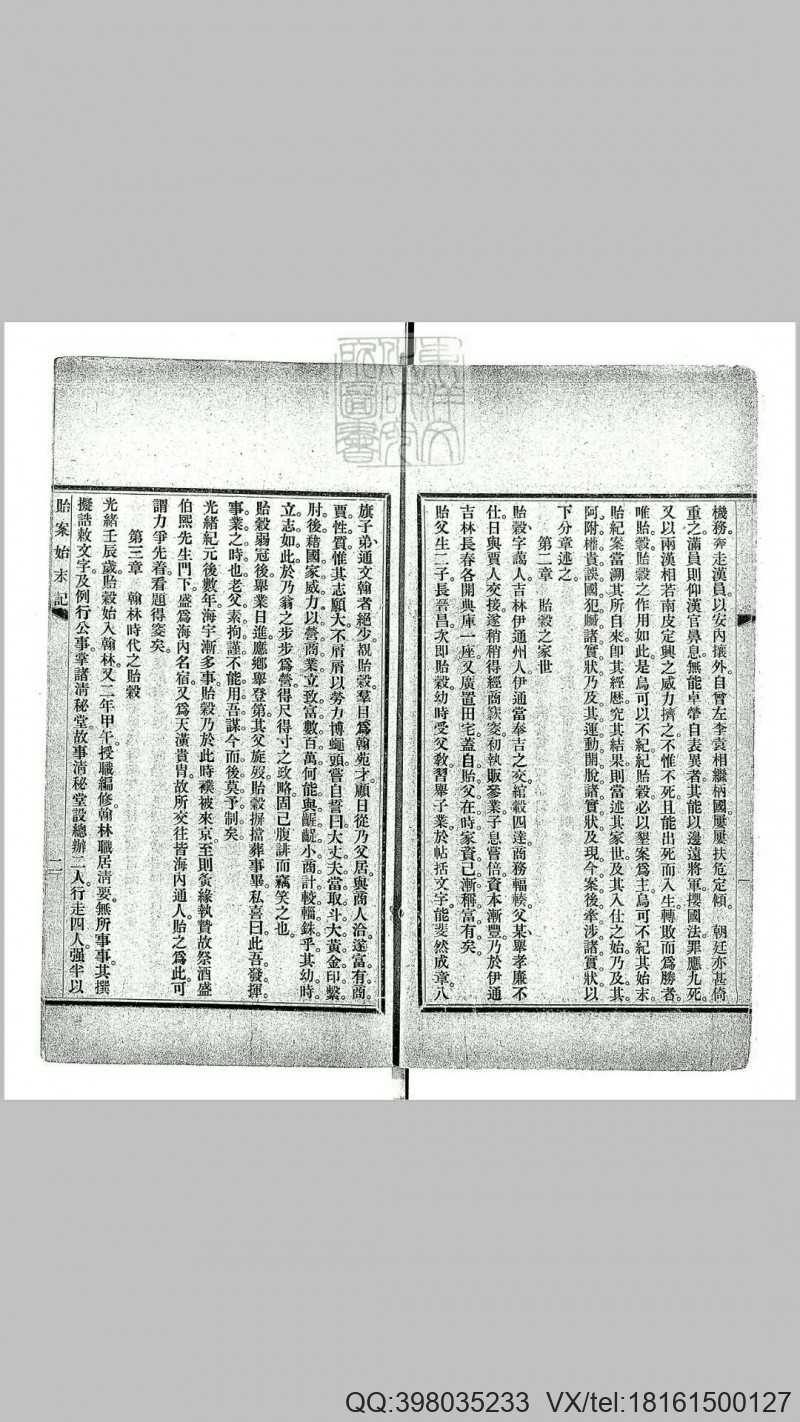 機務奔走漢員以安內攘外自曾左李袁相繼柄國屢屢扶危定傾。　朝廷亦甚倚
重之滿員則仰漢官鼻息無能卓犖自表異者其能以邊遠將軍攖國法罪應九死。
又以兩漢相若南皮定興之威力擠之不惟不死且能出死而入生轉敗而爲勝者。
唯貽穀貽穀之作用如此是烏可以不紀紀貽穀必以墾案爲主烏可不紀其始末
貽紀案當溯其所自來卽其經歷究其結果則當述其家世及其入仕之始乃及其
阿附權貴誤國犯贓諸實狀乃及其運動開脫諸實狀及現今案後牽涉諸實狀以
下分章述之。
第二章　貽穀之家世
貽穀字藹人。吉林伊通州人伊通當奉吉之交綰轂四達商務輻輳父某舉孝廉不
仕日與賈人交接遂稍稍得經商竅窔初執販參業子息嘗倍資本漸豐乃於伊通
吉林長春各開典庫一座又廣置田宅蓋自貽父在時家資已漸稱富有矣。
貽父生二子長晉昌次卽貽穀幼時受父教習舉子業於帖括文字能斐然成章。八
旗子弟通文翰者絕少覩貽穀羣目爲翰苑才顧日從乃父居與商人洽遂富有商
賈性質惟其志願大不屑屑以勞力博蠅頭嘗自誓曰大丈夫當取斗大黃金印繫
肘後藉國家威力以營商業立致富數百萬何能與齷齪小商計較錙銖乎其幼時
立志如此於乃翁之步步爲營得尺得寸之政略固已腹誹而竊笑之也。
貽穀弱冠後舉業日進應鄉舉登第其父旋歿貽穀摒擋葬事畢私喜曰此吾發揮
事業之時也老父素拘謹不能用吾謀今而後莫予制矣。
光緒紀元後數年海宇漸多事貽穀乃於此時襆被來京至則夤緣執贄故祭酒盛
伯熙先生門下盛爲海內名宿又爲天潢貴冑故所交往皆海內通人貽之爲此可
謂力爭先着看題得姿矣。
第三章　翰林時代之貽穀
光緒壬辰歲貽穀始入翰林又二年甲午授職編修翰林職居清要無所事事其撰
擬誥敕文字及例行公事掌諸清秘堂故事清秘堂設總辦二人行走四人强半以
貽案始末記
二
QQ:398035233 VX/tel:18161500127